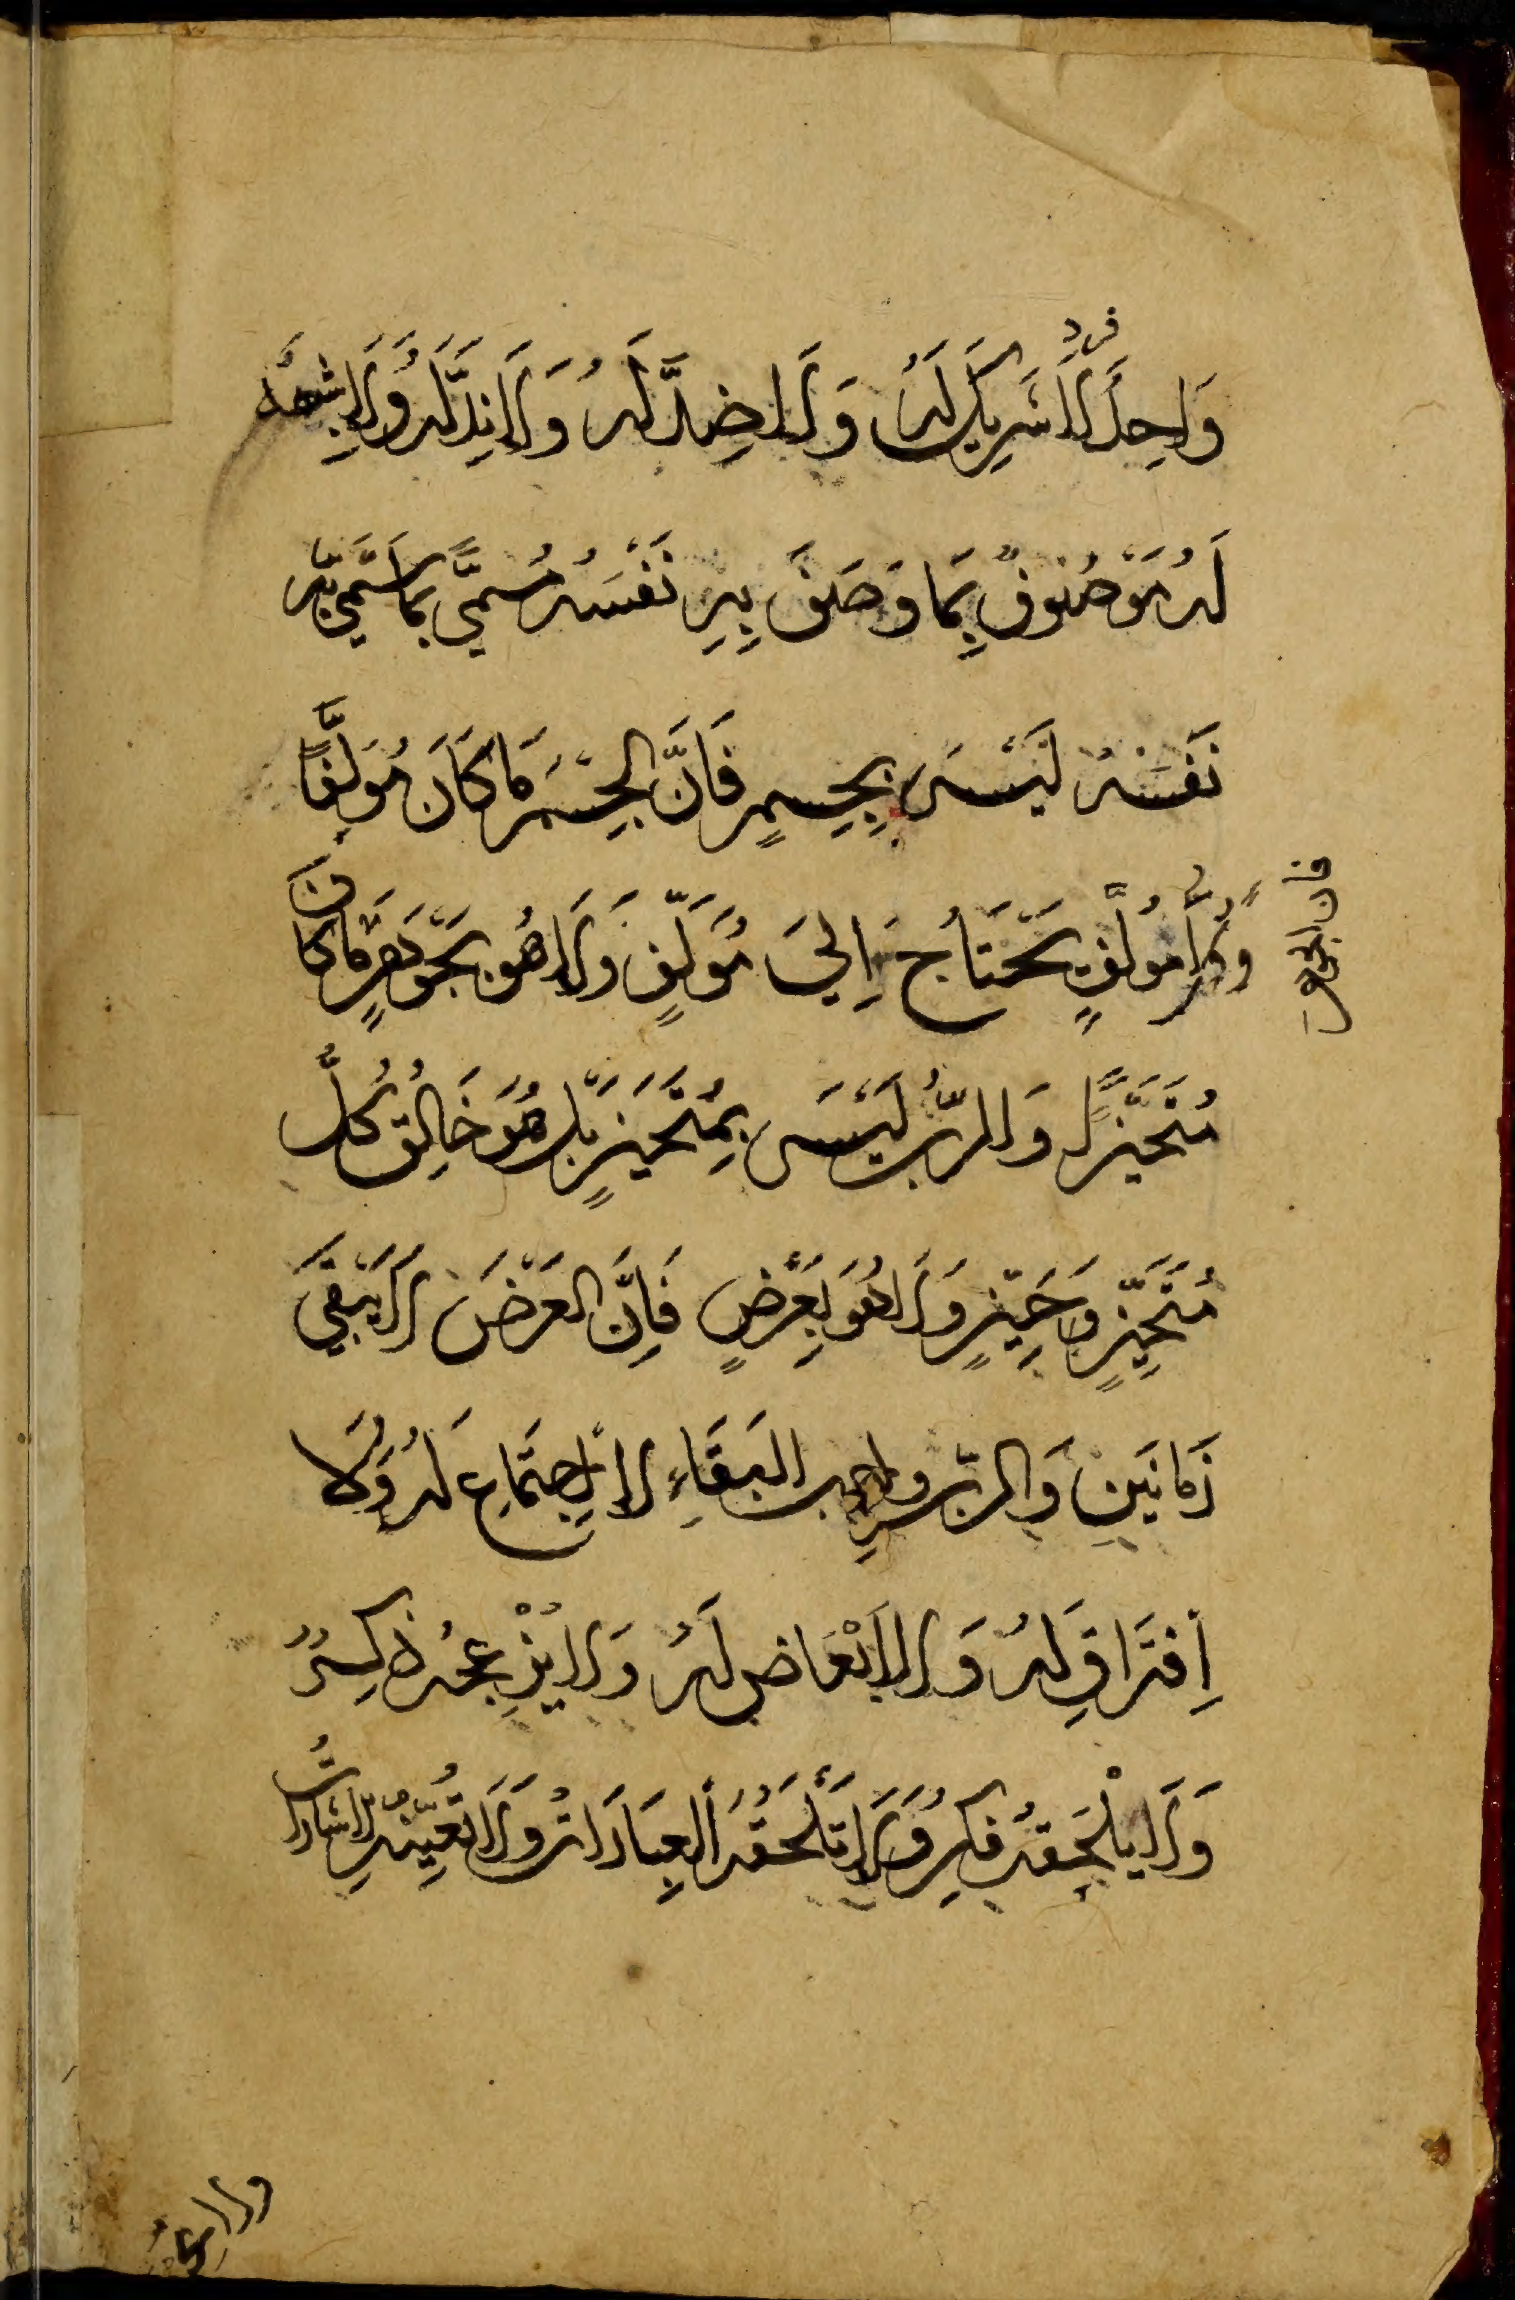 فرد
وَاحِدٌ لَا شَرِيْكَ لَهُ وَلَا ضِدَّ لَهُ وَلَا نِدَّ لَهُ وَلَا شِبْهَ
لَهُ مَوْصُوْفٌ بِمَا وَصَفَ بِهِ نَفْسَهُ مُسَمًّى بِمَا سَمَّى بِهِ
نَفْسَهُ لَيْسَ بِجِسْمٍ فَاِنَّ الْجِسْمَ مَا كَانَ مُؤَلَّفًا
وَكُلُّ مُؤَلَّفٍ يَحْتَاجُ اِلَى مُؤَلِّفٍ وَلَا هُوَ بِجَوْهَرٍ مَا كَانَ
فان الجوهر
مُتَحَيِّزًا وَالرَّبُّ لَيْسَ بِمُتَحَيِّزٍ بَلْ هُوَ خَالِقُ كُلِّ
مُتَحَيِّزٍ وَحَيِّزٍ وَلَا هُوَ بِعَرَضٍ فَاِنَّ الْعَرَضَ لَا يَبْقَى
زَمَانَيْنِ وَالرَّبُّ وَاجِبُ الْبَقَاءِ لَا اِجْتِمَاعَ لَهُ وَلَا
اِفْتِرَاقَ لَهُ وَلَا اَبْعَاضَ لَهُ وَلَا يُزْعِجُهُ ذِكْرٌ
وَلَا يَلْحَقُهُ فِكْرٌ وَلَا تَلْحَقُهُ الْعِبَارَاتُ وَلَا تُعَيِّنُهُ الْاِشَارَاتُ